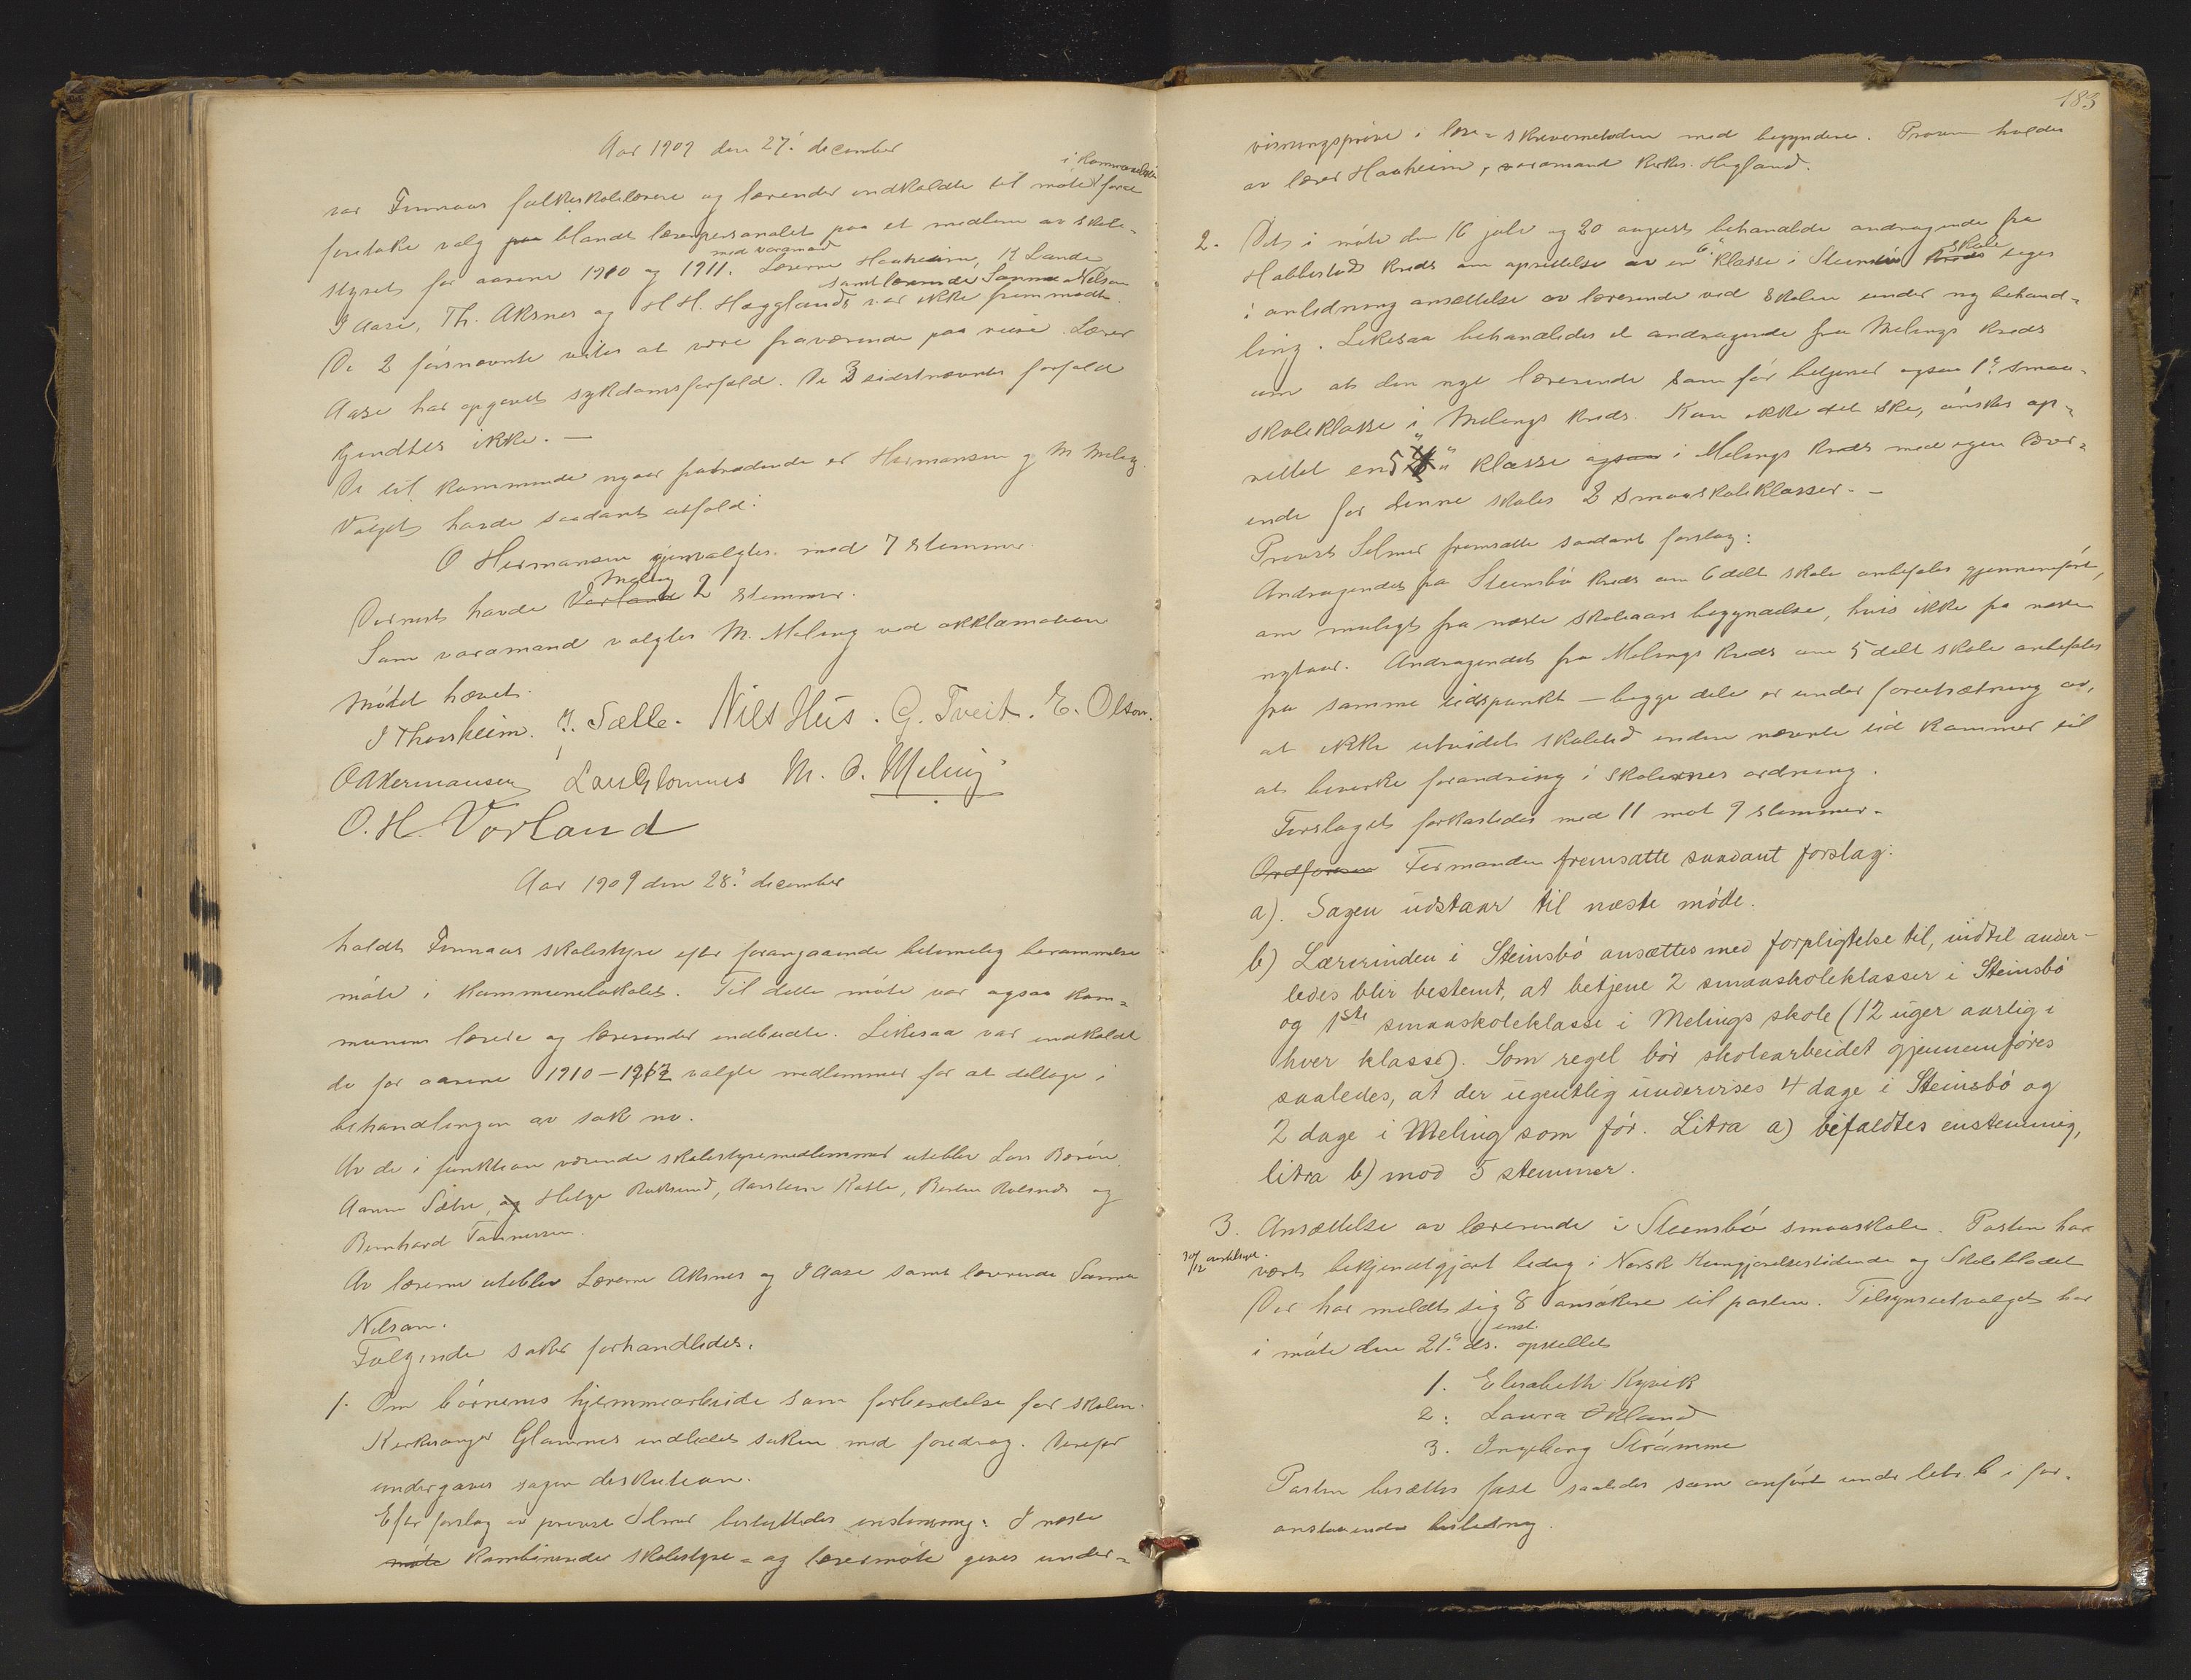 Aar 1909 den 27. december
var Finnaas folkeskolelærere og lærerinder indkaldte til møte i kommunelokalet for at
foretake valg paa blandt lærerpersonalet paa et medlem av skole-
styret med varamand for aarene 1910 og 1911. Lærerne Haaheim, K Lande
I Aase, Th. Aksnes og H H. Hægglands samt lærerinde Sanna Nilsen var ikke fremmødt.
De 2 førsnævnte vites at være fraværende paa reise. Lærer
Aase har opgivet sykdomsforfald. De 3 sidstnævntes forfald
kjendtes ikke. —
De til kommende nyaar fratrædende er Hermansen og M Meling.
Valget havde saadant utfald:
O Hermansen gjenvalgtes med 7 stemmer.
Dernest havde Vorland Meling 2 stemmer.
Som varamand valgtes M. Meling ved akklamation
Møtet hævet.
I Thorsheim. J. Sælle. Nils Hus. G. Tveit. E. Olson.
O Hermansen Lars Glomnes M. O. Meling
O. H. Vorland
Aar 1909 den 28. december
holdt Finnaas skolestyre efter forangaaende betimelig berammelse
møte i kommunelokalet. Til dette møte var ogsaa kom-
munens lærere og lærerinder indbudte. Likesaa var indkaldt
de for aarene 1910–1912 valgte medlemmer for at deltage i
behandlingen av sak no.
Av de i funktion værende skolestyremedlemmer uteblev Lars Børøen
Aamu Sætre, og Helge Buksund, Aarstein Katle, Berten Robinds og
Bernhard Tønnesen.
Av lærerne uteblev Lærerne Aksnes og I Aase samt lærerinde Sanna
Nilsen.
Følgende saker forhandledes.
1. Om børnenes hjemmearbeide som forberedelse for skolen.
Kirkesanger Glomnes indledet saken med foredrag. Derefter
undergaves sagen diskution.
Efter forslag av provst Selmer besluttedes enstemmig: I næste
møte kombinerede skolestyre- og lærermøte gives under-
183
visningsprøve i læse-skrivemetoden med begyndere. Prøven holdes
av lærer Haaheim, varamand kirkes. Hegland.
2. Det i møte den 16 juli og 20 august behandlede andragende fra
Habbestad kreds om oprettelse av en 6. klasse i Steinsbø kreds skole tages
i anledning ansættelse av lærerinde ved skolen under ny behand-
ling. Likesaa behandledes et andragende fra Melings kreds
om at den nye lærerinde som før betjener ogsaa 1. smaa-
skoleklasse i Melings kreds. Kan ikke det ske, ønskes op-
rettet en 5. klasse ogsaa i Melings kreds med egen lærer-
inde for denne skoles 2 smaaskoleklasser. —
Provst Selmer fremsatte saadant forslag:
Andragendet fra Steinsbø kreds om 6 delt skole anbefales gjennemført,
om muligt fra næste skoleaars begyndelse, hvis ikke fra næste
nytaar. Andragendet fra Melings kreds om 5 delt skole anbefales
fra samme tidspunkt – begge dele er under forutsætning av,
at ikke utvidet skoletid inden nævnte tid kommer til
at bevirke forandring i skolernes ordning.
Forslaget forkastedes med 11 mot 9 stemmer.
Ordføreren Formanden fremsatte saadant forslag:
a). Sagen udstaar til næste møde.
b) Lærerinden i Steinsbø ansættes med forpligtelse til, indtil ander-
ledes blir bestemt, at betjene 2 smaaskoleklasser i Steinsbø
og 1ste smaaskoleklasse i Melings skole (12 uger aarlig i
hver klasse). Som regel bør skolearbeidet gjennemføres
saaledes, at der ugentlig undervises 4 dage i Steinsbø og
2 dage i Meling som før. Litra a) bifaldtes enstemmig,
litra b) mod 5 stemmer.
3. Ansættelse av lærerinde i Steinsbø smaaskole. Posten har
30/12
været bekjendtgjort ledig i Norsk Kungjørelsestidende og Skolebladet
Der har meldt sig 8 ansøkere til posten. Tilsynsutvalget har
i møte den 21. ds. enst. opstillet
1. Elisabeth Kyvik
2. Laura Økland
3. Ingeborg Strømme
Posten besættes fast saaledes som anført under litr. b i for-
anstaaende beslutning.